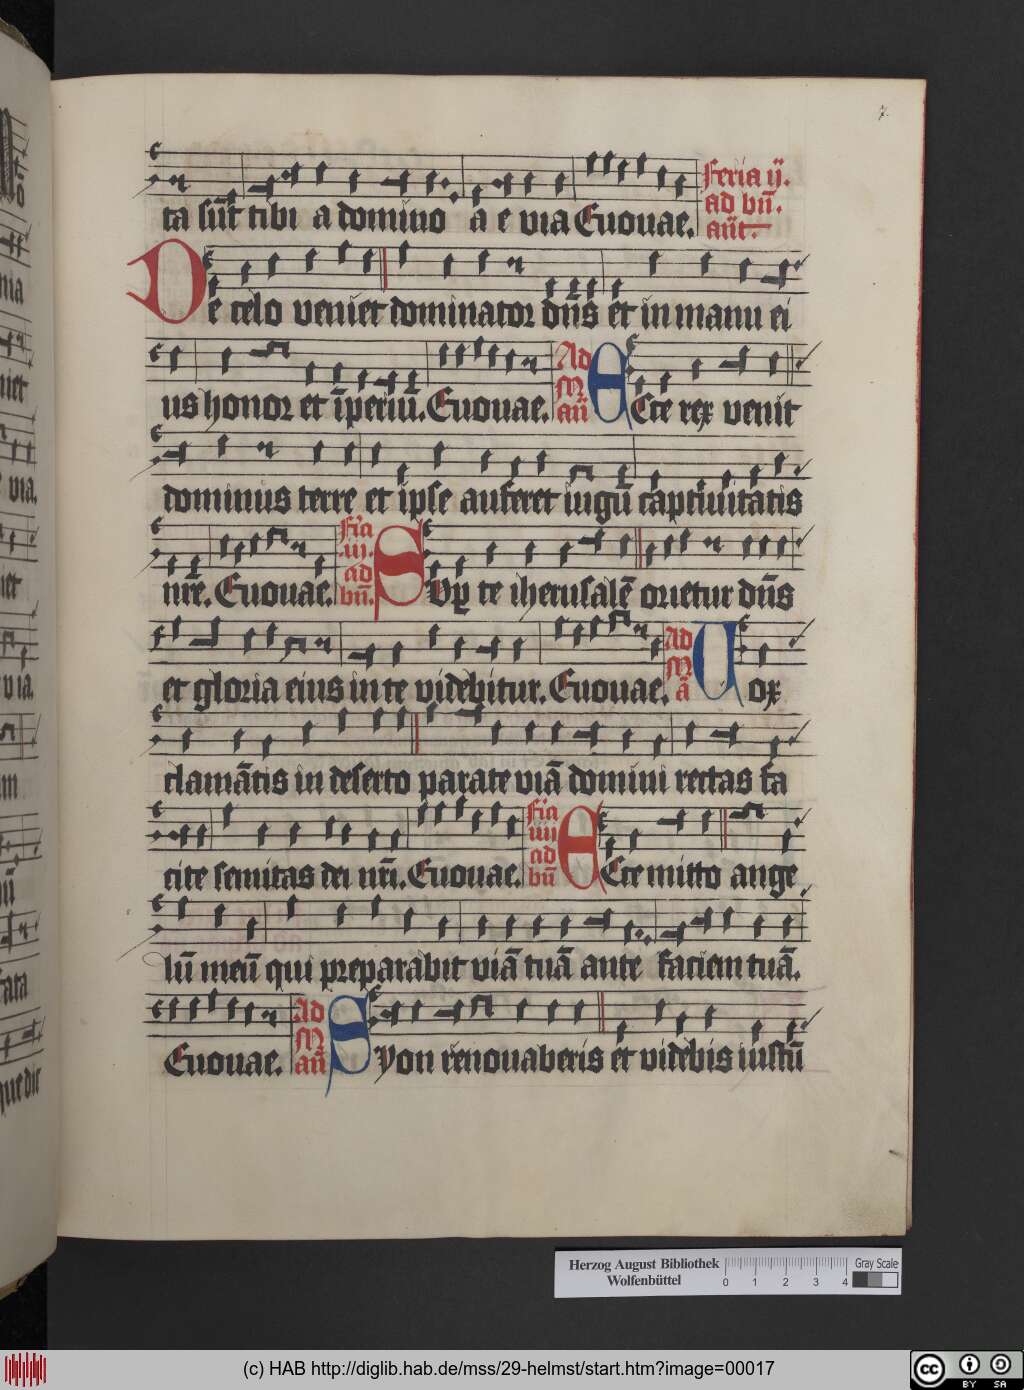 7
ta sūt tibi a domino a e via Euouae. Feria ij. ad bn̄. an̄t.
De celo veniet dominator dn̄s et in manu ei
us honor et īperiū. Euouae. Ad M an̄ Ecce rex venit
dominus terre et ipse auferet iugū captiuitatis
nr̄e. Euouae. Fīa .iij. ad bn̄. Sup te iherusalē orietur dn̄s
et gloria eius in te videbitur. Euouae. Ad M ā Uox
clamātis in deserto parate viā domini rectas fa
cite semitas dei nr̄i. Euouae. Fīa iiij ad bn̄ Ecce mitto ange
lū meū qui preparabit viā tuā ante faciem tuā.
Euouae. Ad M an̄ Syon renouaberis et videbis iustū
nia
niet
via.
iet
via.
m
fata
que dic
Herzog August Bibliothek
Wolfenbüttel
0 1 2 3 4
Gray Scale
(c) HAB http://diglib.hab.de/mss/29-helmst/start.htm?image=00017
cc BY SA